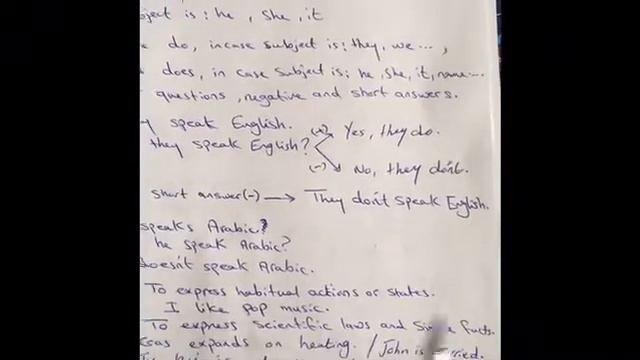 ject is: he, She, it
do, in case subject is: they, we ...,
does, in case Subject is: he, she, it, name...
questions, negative and short answers.
y speak English.
they speak English? (+) Yes, they do.
(-) No, they don't.
short answer(-) → They don't speak English.
speaks Arabic?
he speak Arabic?
doesn't speak Arabic.
To express habitual actions or states.
I like pop music.
To express scientific laws and Simple facts.
Gas expands on heating. / John is